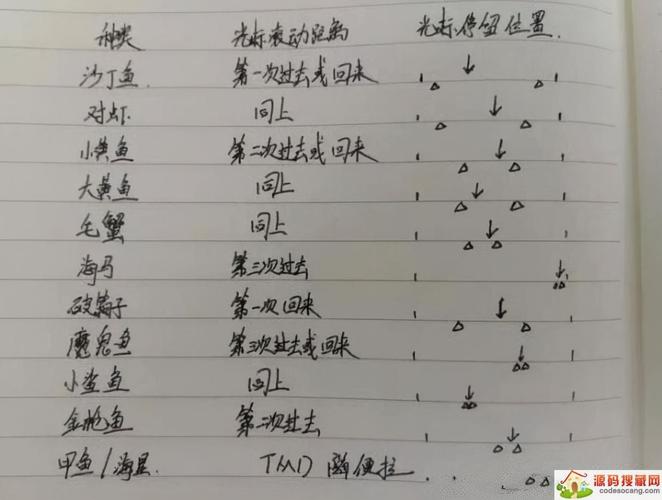 种类 光标滚动距离 光标停留位置
沙丁鱼 第一次过去或回来
对虾 同上
小黄鱼 第二次过去或回来
大黄鱼 同上
毛蟹 同上
海马 第三次过去
破篇子 第一次回来
魔鬼鱼 第三次过去或回来
小鲨鱼 同上
金枪鱼 第二次过去
甲鱼/海星 TMD 随便拉..
源码搜藏网
codesocang.com